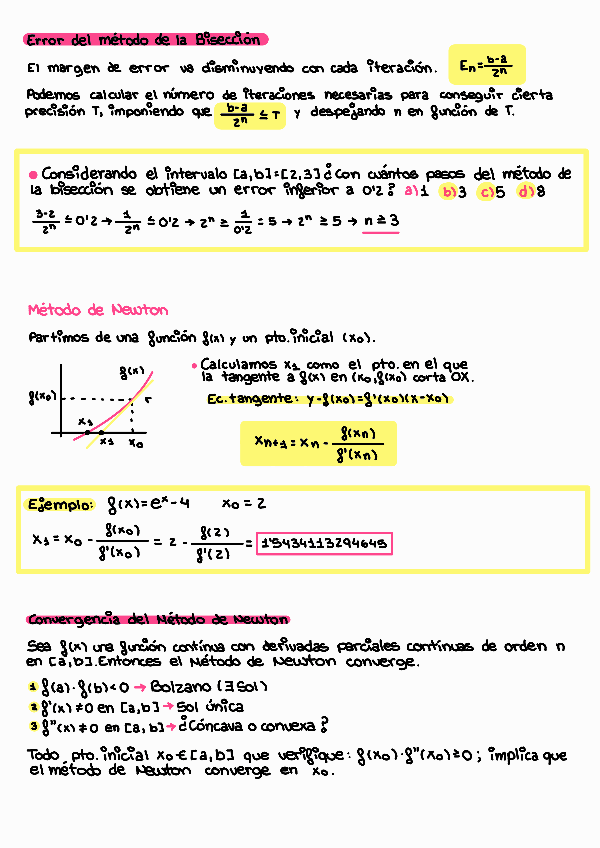 Error del método de la Bisección
El margen de error va disminuyendo con cada iteración. En = b-a / 2ⁿ
Podemos calcular el número de iteraciones necesarias para conseguir cierta
precisión T, imponiendo que b-a / 2ⁿ ≤ T y despejando n en función de T.
• Considerando el intervalo [a,b]=[2,3] ¿con cuántos pasos del método de
la bisección se obtiene un error inferior a 0'2? a)1 b)3 c)5 d)8
3-2 / 2ⁿ ≤ 0'2 → 1 / 2ⁿ ≤ 0'2 → 2ⁿ ≥ 1 / 0'2 = 5 → 2ⁿ ≥ 5 → n ≥ 3
Método de Newton
Partimos de una función f(x) y un pto. inicial (x₀).
• Calculamos x₁ como el pto. en el que
la tangente a f(x) en (x₀,f(x₀) corta OX.
Ec. tangente: y-f(x₀)=f'(x₀)(x-x₀)
f(x)
f(x₀)
r
x₁
x₁ x₀
xₙ₊₁ = xₙ - f(xₙ) / f'(xₙ)
Ejemplo: f(x)=eˣ-4 x₀ = 2
x₁ = x₀ - f(x₀) / f'(x₀) = 2 - f(2) / f'(2) = 1'5434113294645
Convergencia del Método de Newton
Sea f(x) una función contínua con derivadas parciales contínuas de orden n
en [a,b]. Entonces el Método de Newton converge.
1 f(a)·f(b)<0 → Bolzano (∃ Sol)
2 f'(x) ≠0 en [a,b] → Sol única
3 f"(x) ≠0 en [a,b] → ¿Cóncava o convexa?
Todo pto. inicial x₀ ∈ [a,b] que verifique: f(x₀)·f"(x₀)≥0; implica que
el método de Newton converge en x₀.